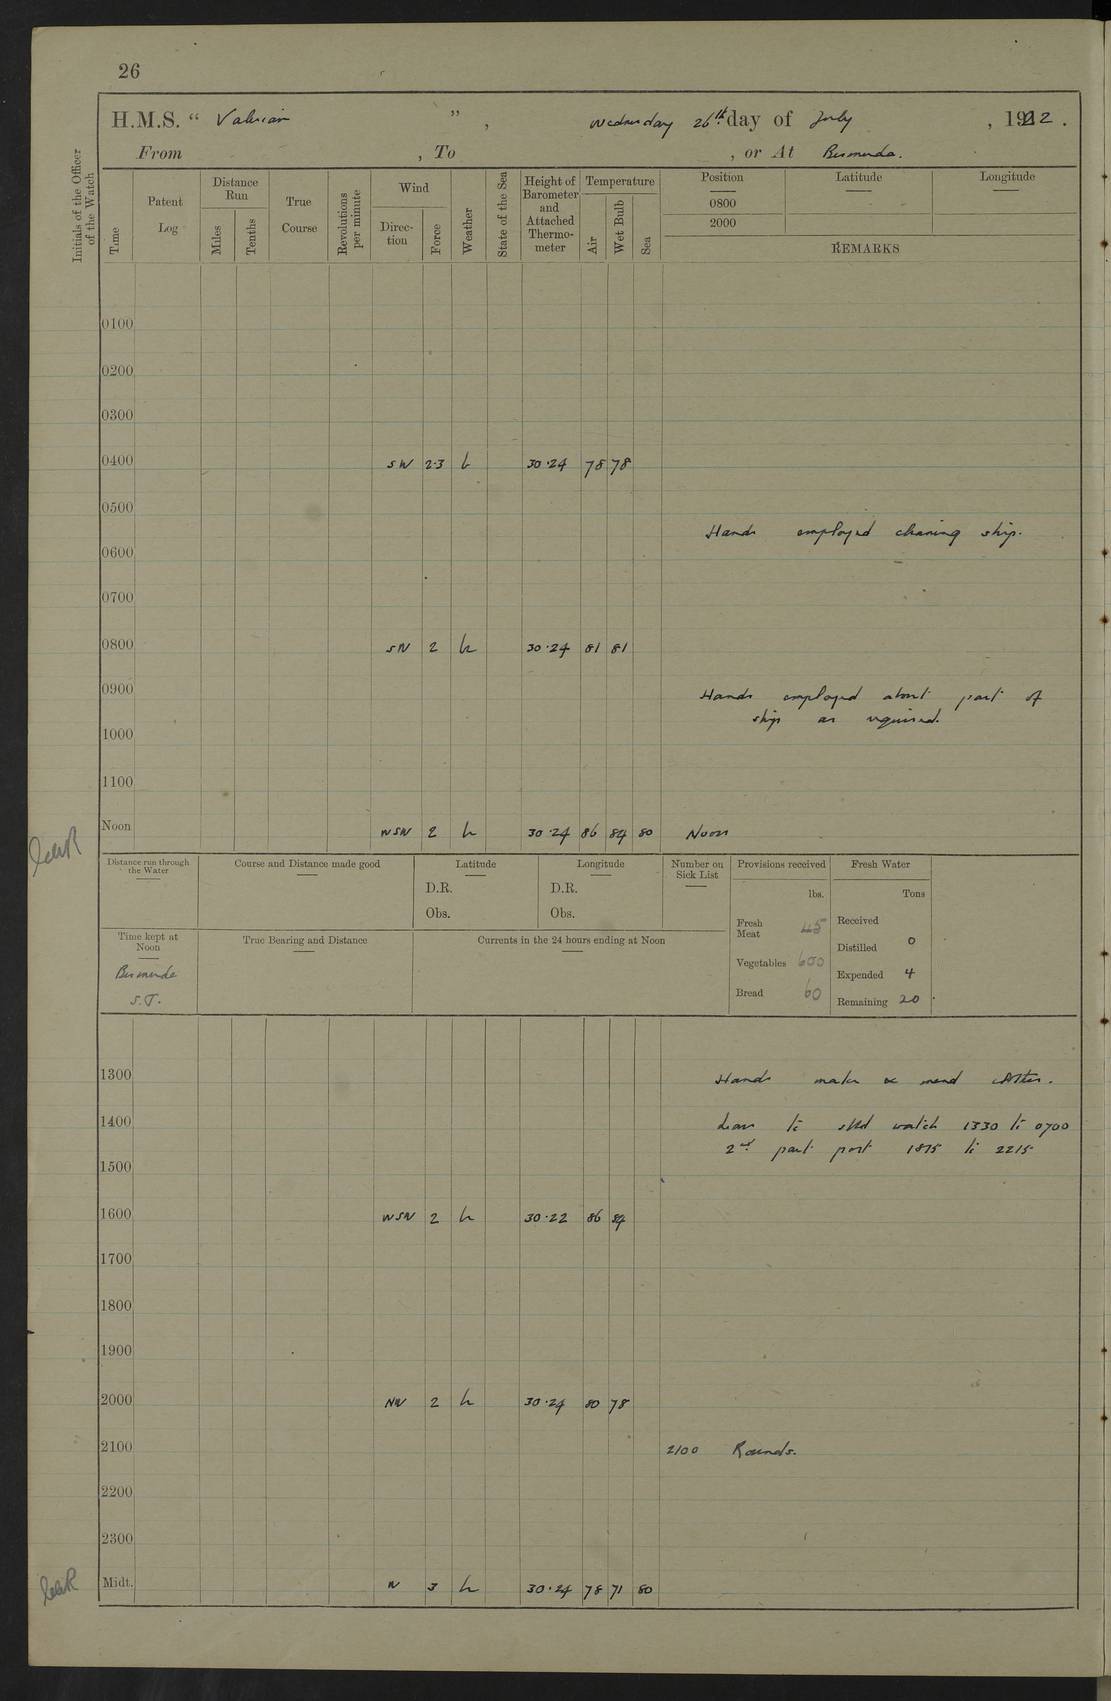 26
H.M.S. “ Valerian ” , Wednesday 26th day of July , 1922 .
From , To , or At Bermuda.
Initials of the Officer of the Watch
Time
Patent Log
Distance Run
Miles
Tenths
True Course
Revolutions per minute
Wind
Direction
Force
Weather
State of the Sea
Height of Barometer and Attached Thermometer
Temperature
Air
Wet Bulb
Sea
Position Latitude Longitude
0800
2000
REMARKS
0100
0200
0300
0400 SW 2·3 b 30·24 78 78
0500
Hands employed cleaning ship.
0600
0700
0800 SW 2 bc 30·24 81 81
0900 Hands employed about part of
ship as required.
1000
1100
Noon WSW 2 bc 30·24 86 84 80 Noon
Distance run through the Water
Course and Distance made good
Latitude
D.R.
Obs.
Longitude
D.R.
Obs.
Number on Sick List
Provisions received
lbs.
Fresh Meat 45
Vegetables 600
Bread 60
Fresh Water
Tons
Received
Distilled 0
Expended 4
Remaining 20
Time kept at Noon
Bermuda
S.T.
True Bearing and Distance
Currents in the 24 hours ending at Noon
1300 Hands make & mend clothes.
1400 Leave to stbd watch 1330 to 0700
2nd part port 1815 to 2215
1500
1600 WSW 2 bc 30·22 86 84
1700
1800
1900
2000 NW 2 bc 30·24 80 78
2100 2100 Rounds.
2200
2300
Midt. W 3 bc 30·24 78 71 80